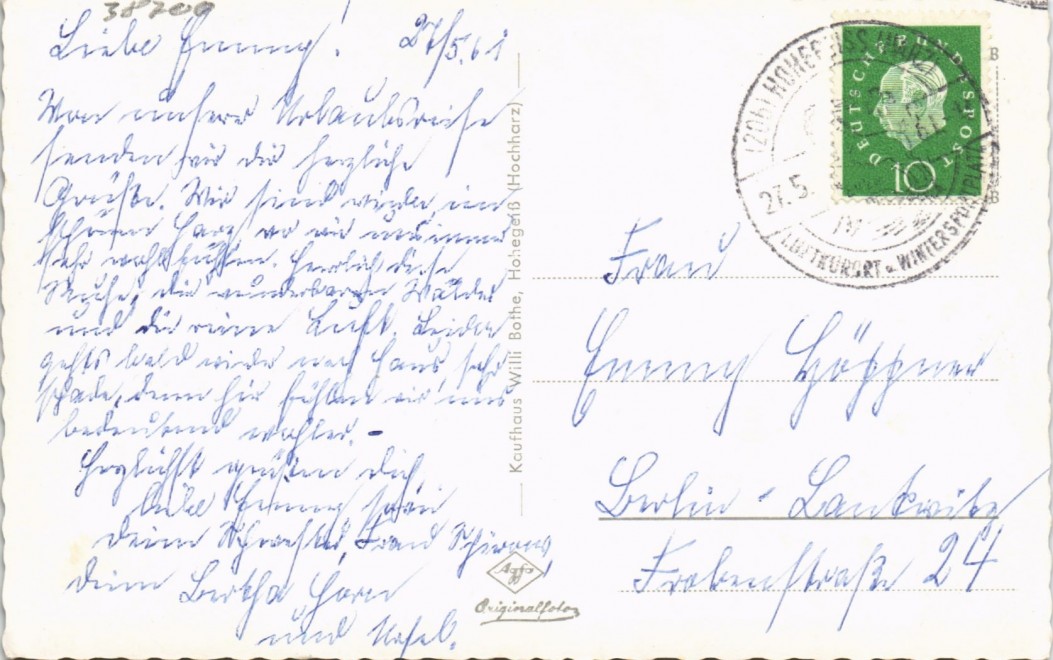 38700
Liebe Emmy! 27/5.61
Von unserer Urlaubsreise
senden wir dir herzliche
Grüße. Wir sind wieder im
schönen Harz wo wir uns immer
sehr wohlfühlen. Herrlich diese
Ruhe, die wunderbaren Wälder
und die reine Luft. Leider
gehts bald wieder nach Haus, sehr
schade, denn hier fühlen wir uns
bedeutend wohler. -
Herzlichst grüßen dich,
liebe Emmy
deine Schwester, Frau
deine Bertha Horn
und
Kaufhaus Willi Bothe, Hohegeiß (Hochharz)
Agfa
Originalfoto
DEUTSCHE BUNDESPOST
10
(20b) HOHEGEISS (HARZ)
27.5.
LUFTKURORT u. WINTERSPORTPLATZ
Frau
Emmy Höppner
Berlin-Lankwitz
Frobenstraße 24